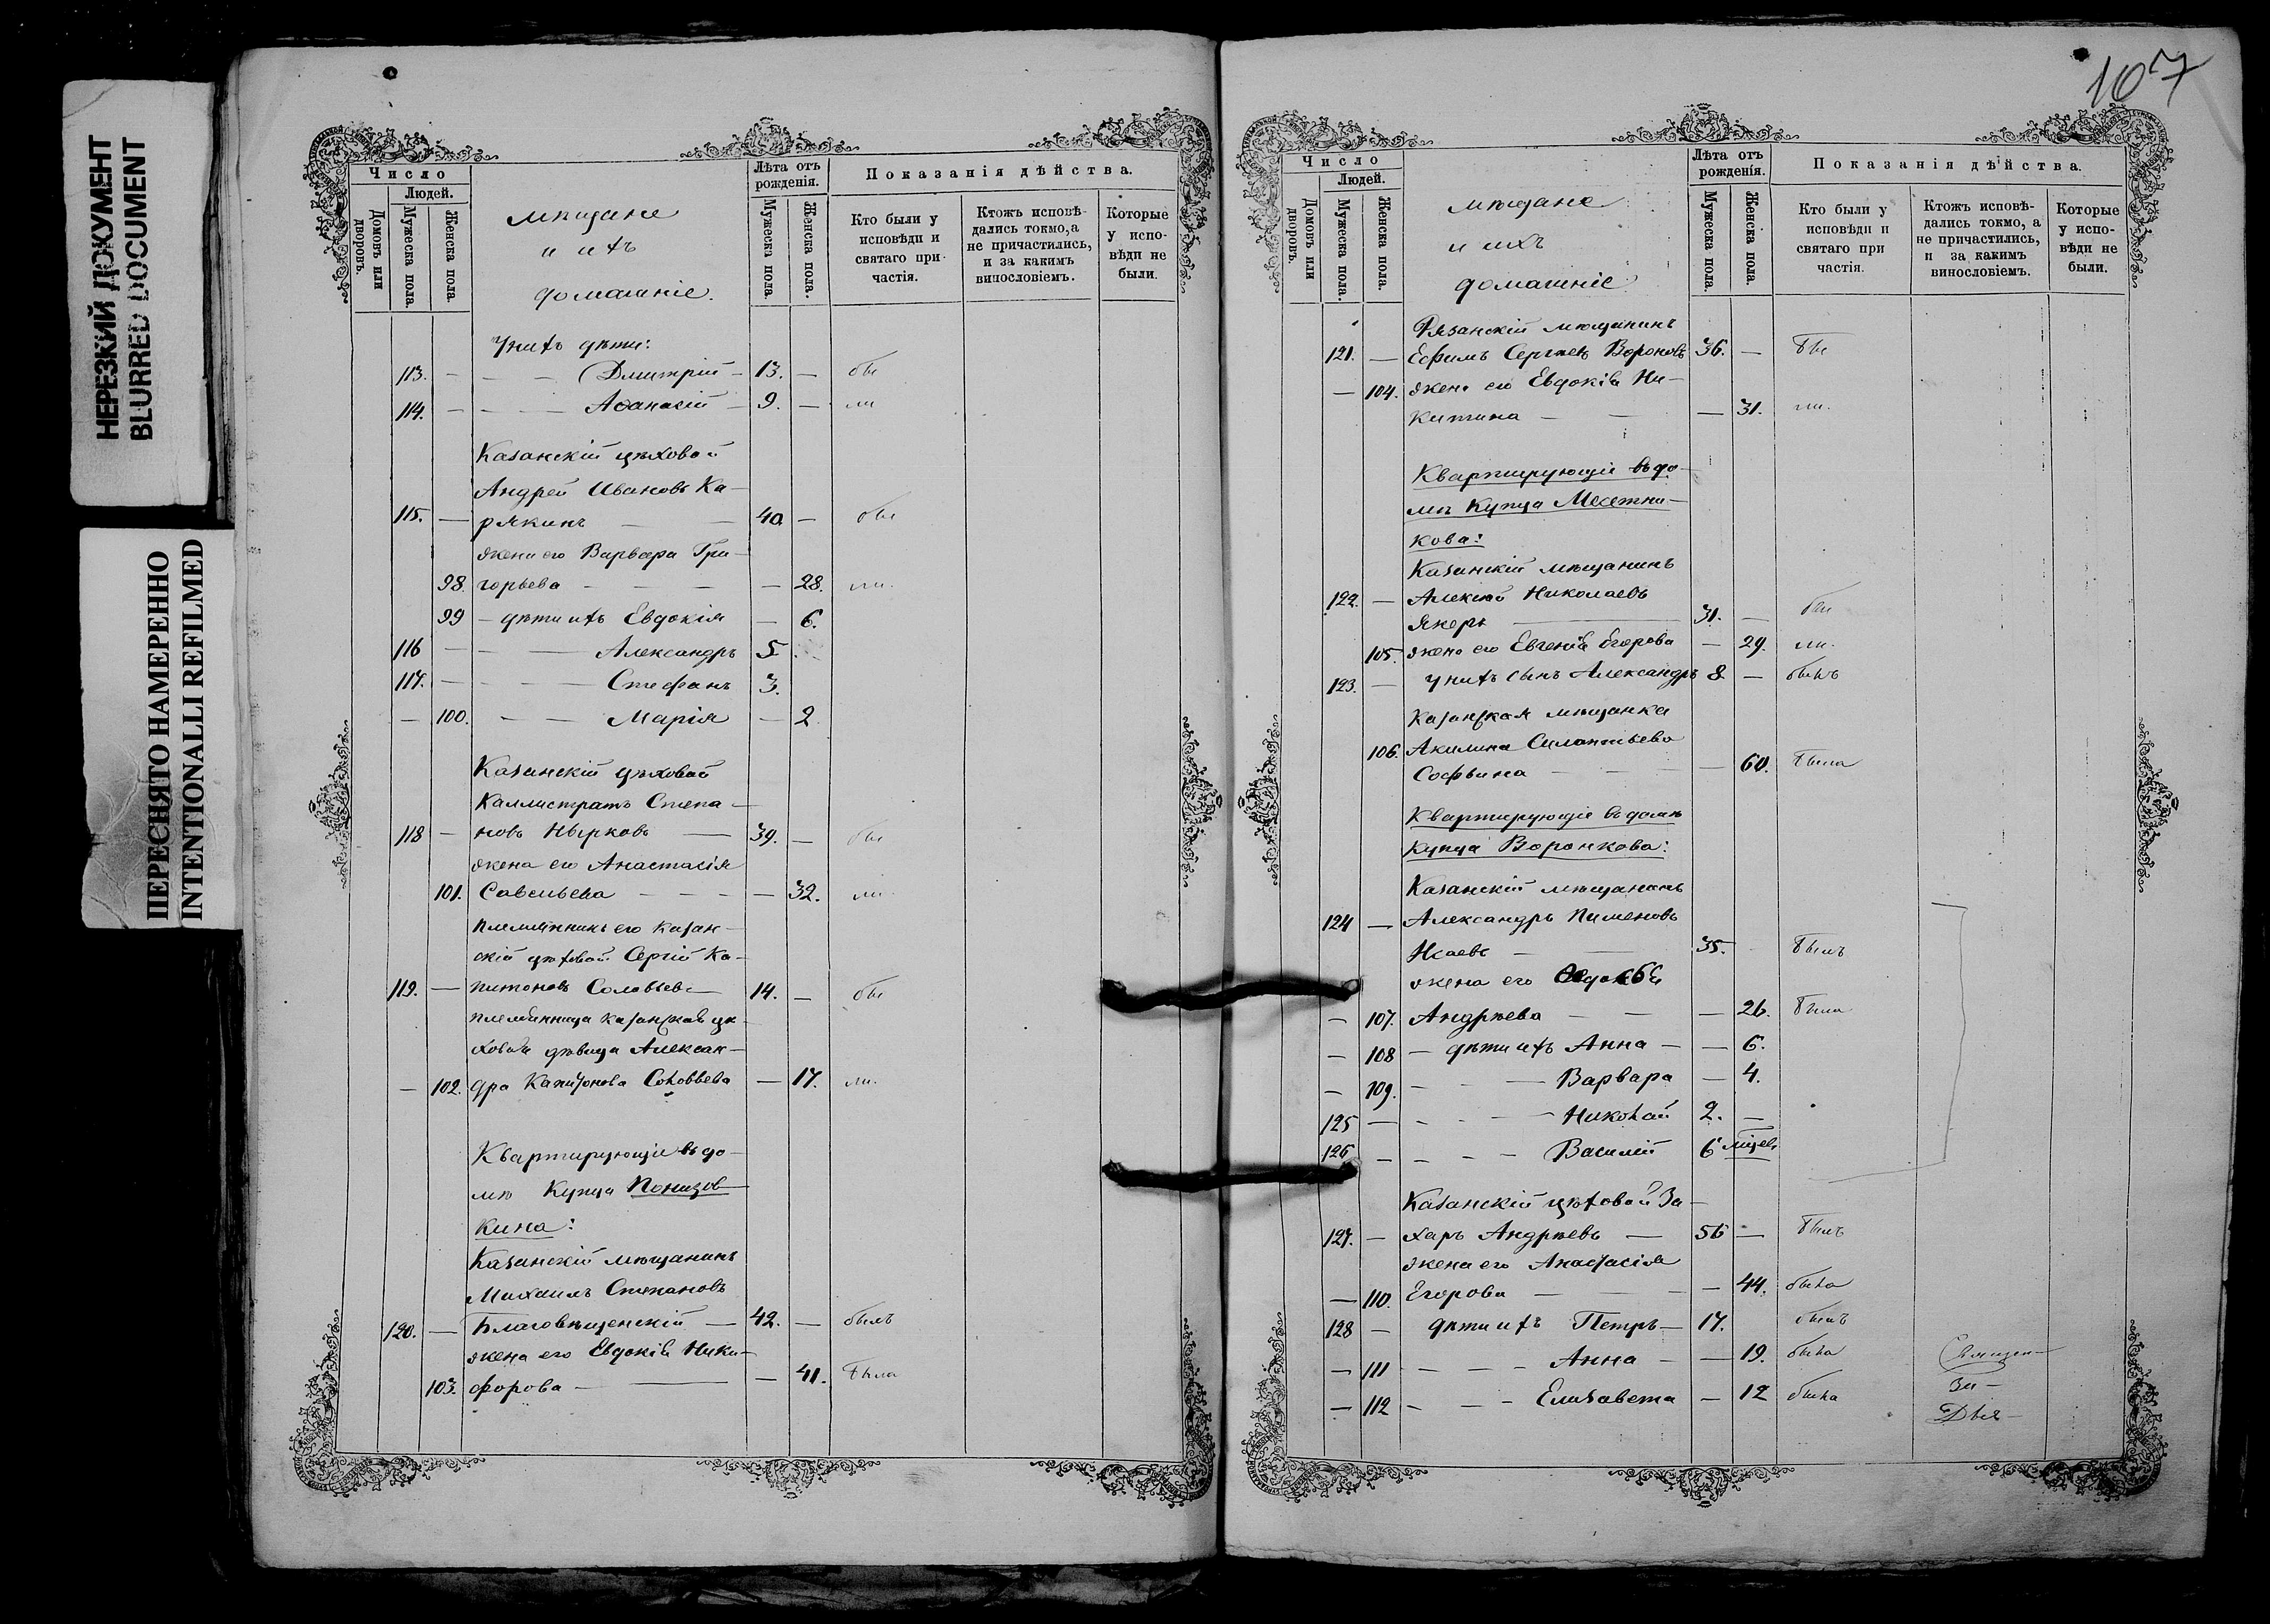 НЕРЕЗКИЙ ДОКУМЕНТ
BLURRED DOCUMENT
ПЕРЕСНЯТО НАМЕРЕННО
INTENTIONALLI REFILMED
Число
Людей.
Домовъ или дворовъ.
Мужеска пола.
Женска пола.
мѣщане
и ихъ
домашніе.
Лѣта отъ рожденія.
Мужеска пола.
Женска пола.
Показанія дѣйства.
Кто были у исповѣди и святаго причастія.
Ктожъ исповѣдались токмо, а не причастились, и за какимъ винословіемъ.
Которые у исповѣди не были.
У нихъ дѣти:
113. — — — Дмитрій — 13. — бы
114. — — — Аѳанасій — 9. — ли
Казанскій цѣховой
Андрей Ивановъ Ка-
115. — рякинъ — — 40. — бы
жена его Варвара Гри-
98. горьева — — — — 28. ли.
99 — дѣти ихъ Евдокія — 6.
116 — — — Александръ 5.
117. — — — Стефанъ 3.
— 100. — — Марія — 2
Казанскій цѣховой
Каллистратъ Степа-
118 — новъ Нырковъ — 39. — бы
жена его Анастасія
101. Савельева — — — — 32. ли.
племянникъ его казан-
скій цѣховой Сергій Ка-
119. — питоновъ Соловьевъ — 14. — бы
племянница казанская цѣ-
ховая дѣвица Алексан-
— 102. дра Капитонова Соловьева — 17. ли.
Квартирующіе въ до-
мѣ Купца Понизов-
кина:
Казанскій мѣщанинъ
Михаилъ Степановъ
120. — Благовѣщенскій — 42. — былъ
жена его Евдокія Ники-
103. форова — — — 41. была
107
Число
Людей.
Домовъ или дворовъ.
Мужеска пола.
Женска пола.
мѣщане
и ихъ
домашніе
Лѣта отъ рожденія.
Мужеска пола.
Женска пола.
Показанія дѣйства.
Кто были у исповѣди и святаго причастія.
Ктожъ исповѣдались токмо, а не причастились, и за какимъ винословіемъ.
Которые у исповѣди не были.
Рязанскій мѣщанинъ
121. — Ефимъ Сергѣевъ Вороновъ 36. — бы
— 104. жена его Евдокія Ни-
китина — — — 31. ли.
Квартирующіе въ до-
мѣ Купца Месетни-
кова:
Казанскій мѣщанинъ
122. — Алексѣй Николаевъ
Якеръ — 31. — бы
105. жена его Евгенія Егорова — 29. ли.
123. — у нихъ сынъ Александръ 8 — былъ
Казанская мѣщанка
106. Акилина Силантьева
Софьина — — — 60. была
Квартирующіе въ домѣ
Купца Воронкова:
Казанскій мѣщанинъ
124 — Александръ Пименовъ
Исаевъ — — 35. былъ
жена его
— 107. Андрѣева — — — 26. была
— 108 — дѣти ихъ Анна — — 6.
— 109. — — — Варвара — 4.
125 — — — — Николай 2. —
126 — — — — Василій 6 мѣсяц.
Казанскій цѣховой За-
127. — харъ Андрѣевъ — 56 — былъ
жена его Анастасія
— 110. Егорова — — — — 44. была
128 — дѣти ихъ Петръ — 17. былъ
— 111 — — — Анна — — 19. была
— 112 — — — Елизавета — 12 была